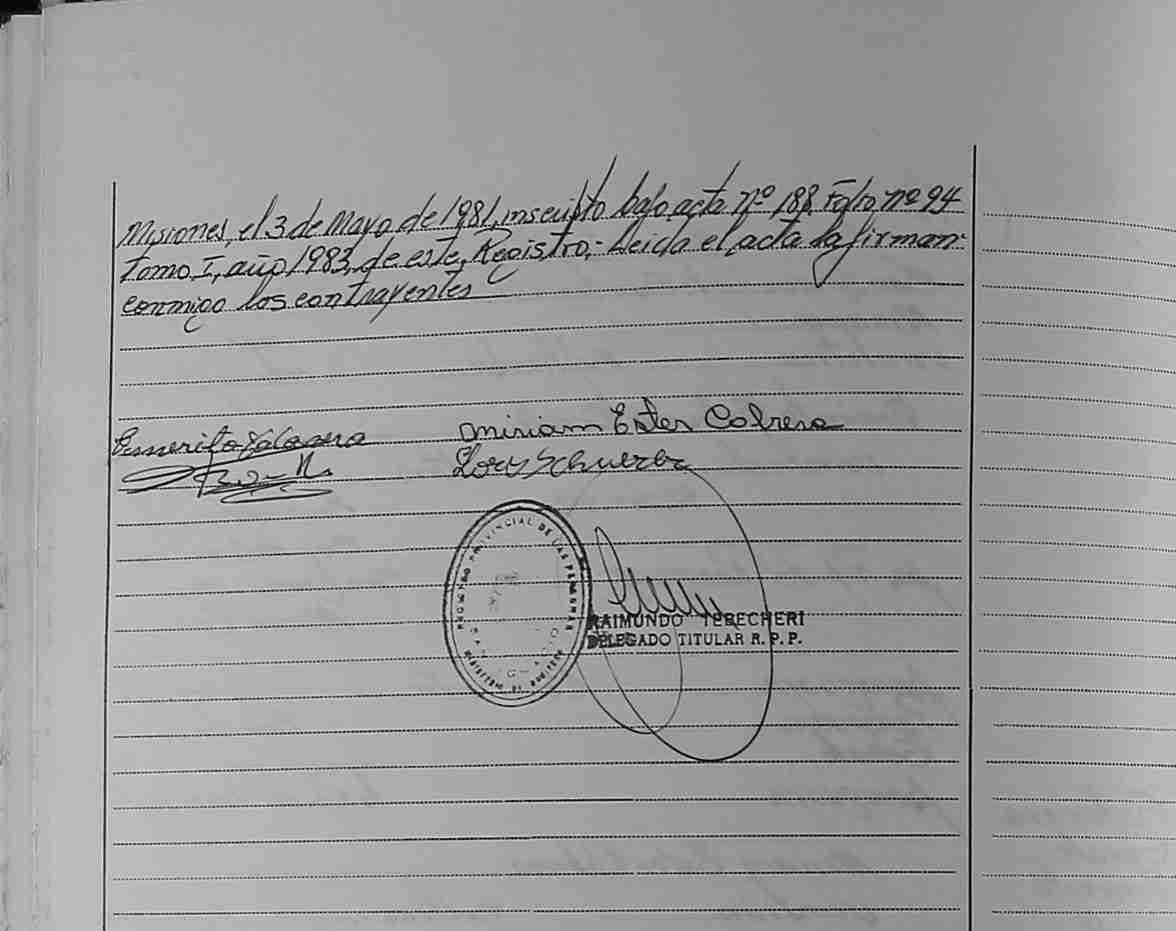 Misiones, el 3 de Mayo de 1981, inscripto bajo acta nº 188, Folio nº 94
Tomo I, año 1983, de este, Registro,- Leida el acta la firman-
conmigo los contrayentes
Miriam Ester Cabrera
REGISTRO PROVINCIAL DE LAS PERSONAS
RAIMUNDO TERECHERI
DELEGADO TITULAR R. P. P.